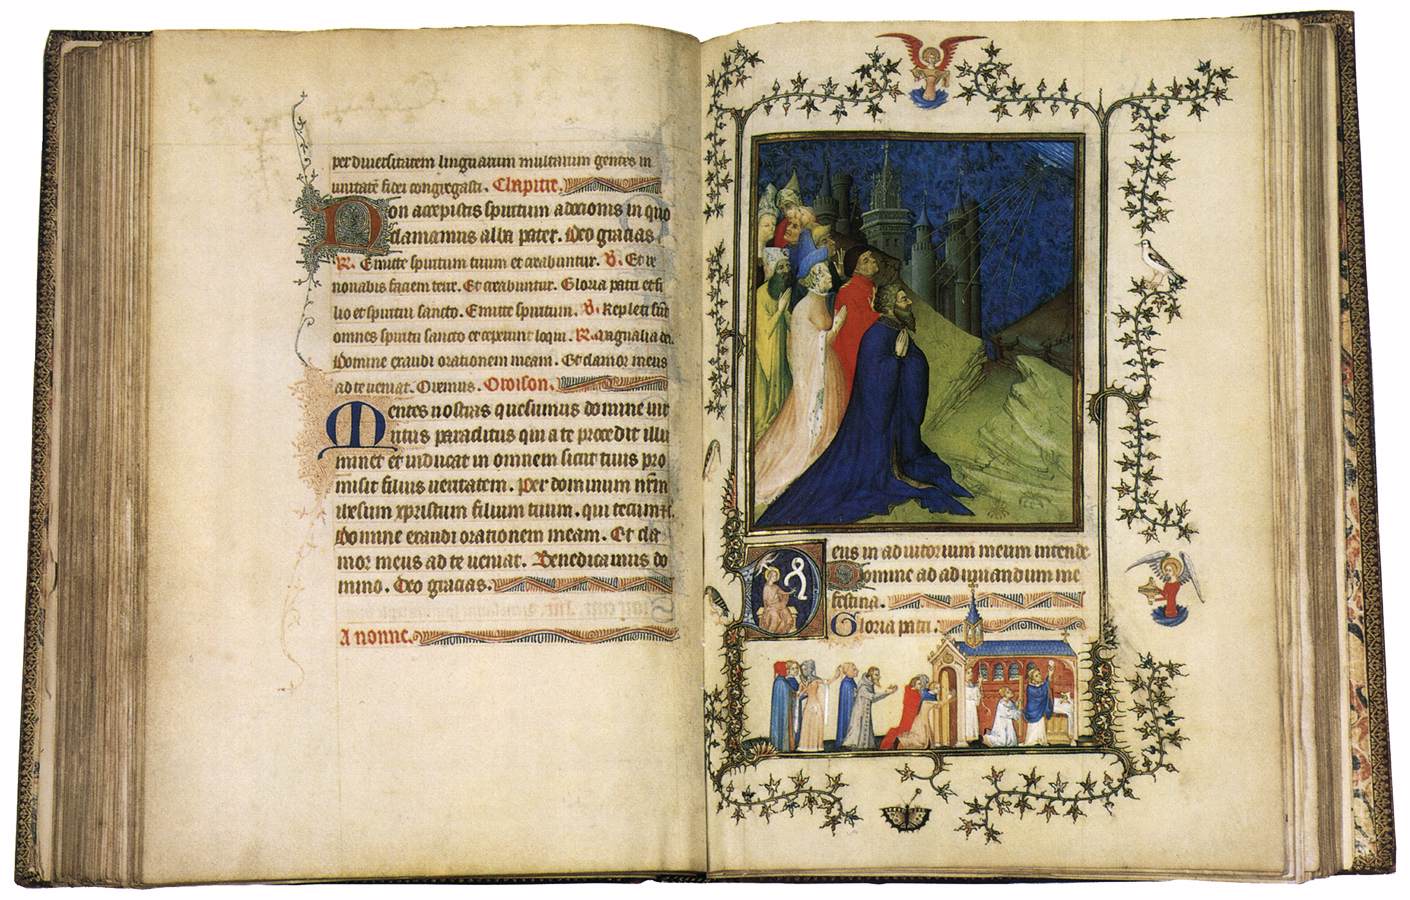 per diversitatem linguarum multarum gentes in
unitatē fidei congregasti. Capitle.
Non accepistis spiritum adocionis in quo
clamamus abba pater. Deo gracias
R. Emitte spiritum tuum et creabuntur. V. Et re
novabis faciem terre. Et creabuntur. Gloria patri et fi
lio et spiritui sancto. Emitte spiritum. V. Repleti sūt
omnes spiritu sancto et ceperunt loqui. R. Magnalia dei.
Domine exaudi orationem meam. Et clamor meus
ad te veniat. Oremus. Oroison.
Mentes nostras quesumus domine spi
ritus paraclitus qui a te procedit illu
minet et inducat in omnem sicut tuus pro
misit filius veritatem. Per dominum nr̄m
ihesum xpristum filium tuum. qui tecum
Domine exaudi orationem meam. Et cla
mor meus ad te veniat. Benedicamus do
mino. Deo gracias.
A nonne.
Deus in adiutorium meum intende
Domine ad adiuuandum me
festina.
Gloria patri.